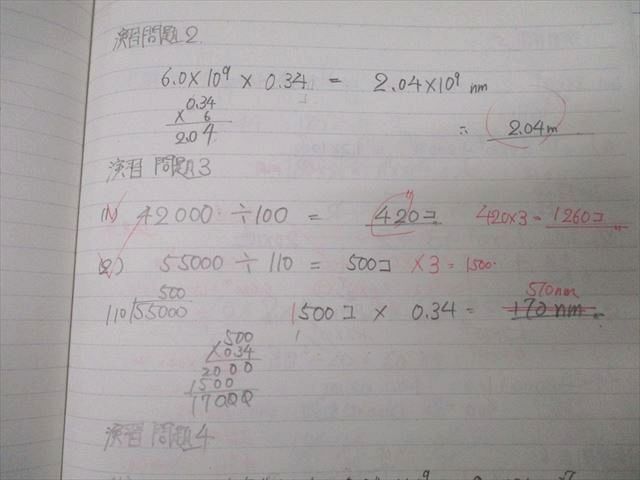 演習問題2
6.0×10⁹ × 0.34 = 2.04×10⁹ nm
0.34
× 6
2.04
∴ 2.04m
演習 問題3
(1) 42000 ÷100 = 420コ 420×3=1260コ
(2) 55000 ÷ 110 = 500コ ×3=1500.
500
110)55000
1500コ × 0.34 = 170 nm 510nm
500
×0.34
2000
1500
17000
演習 問題4